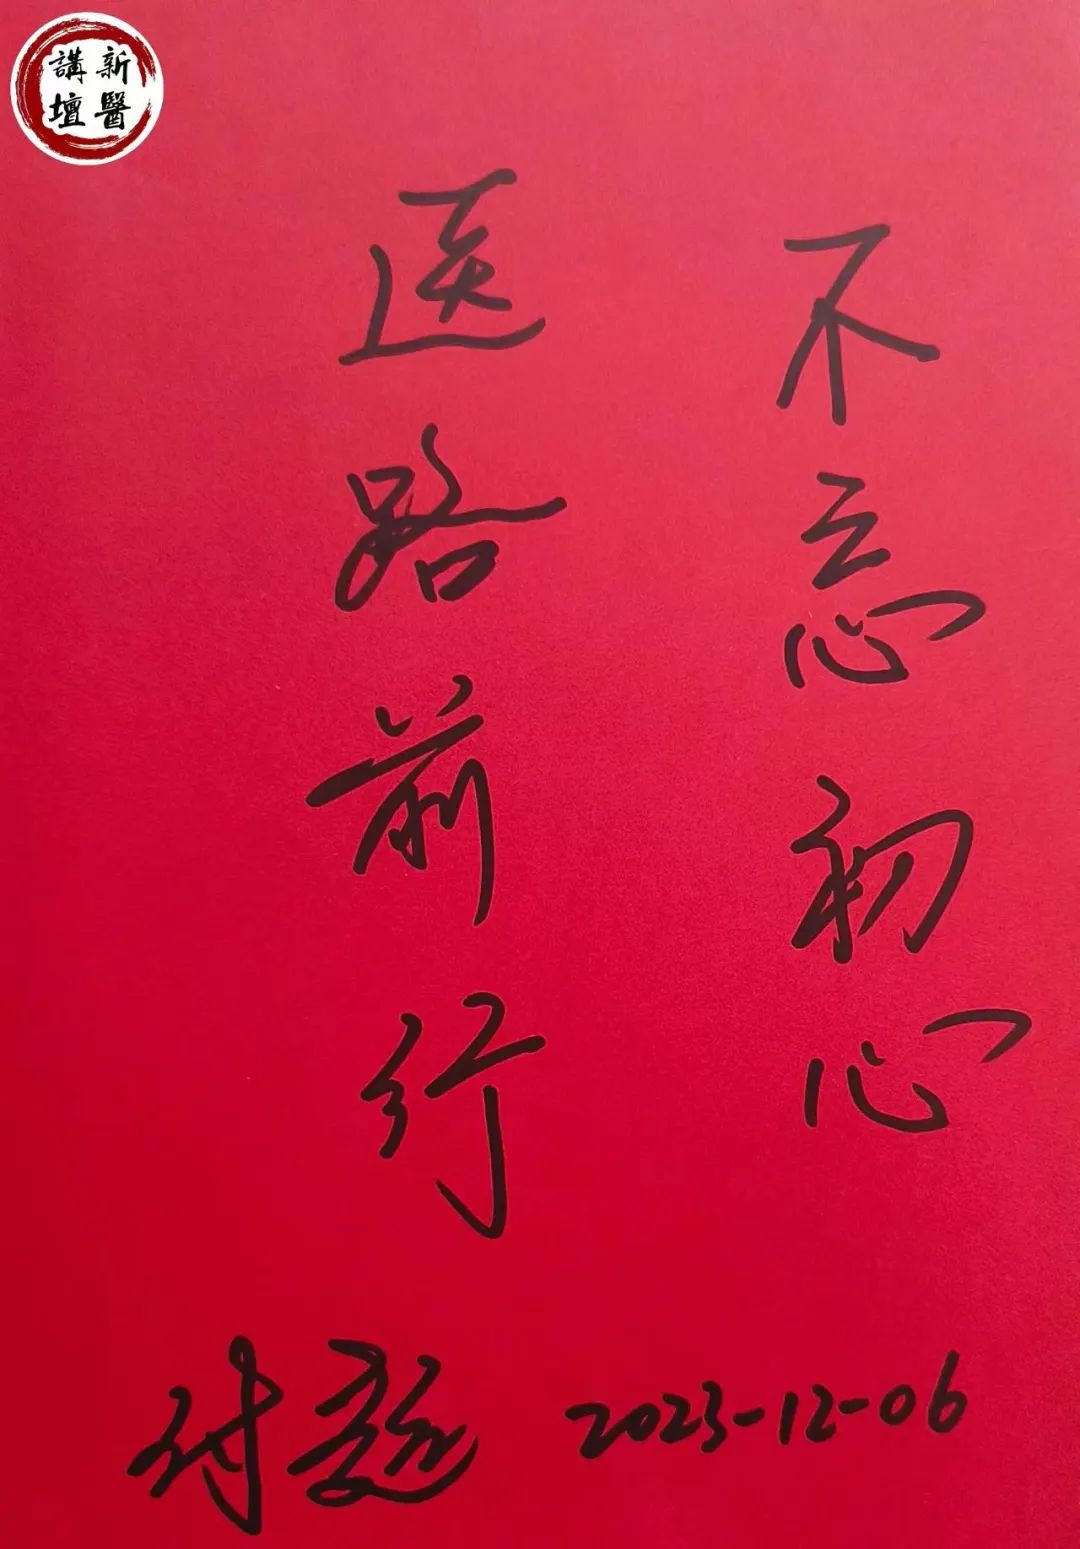 新醫
講壇
不忘初心
医路前行
付
2023-12-06